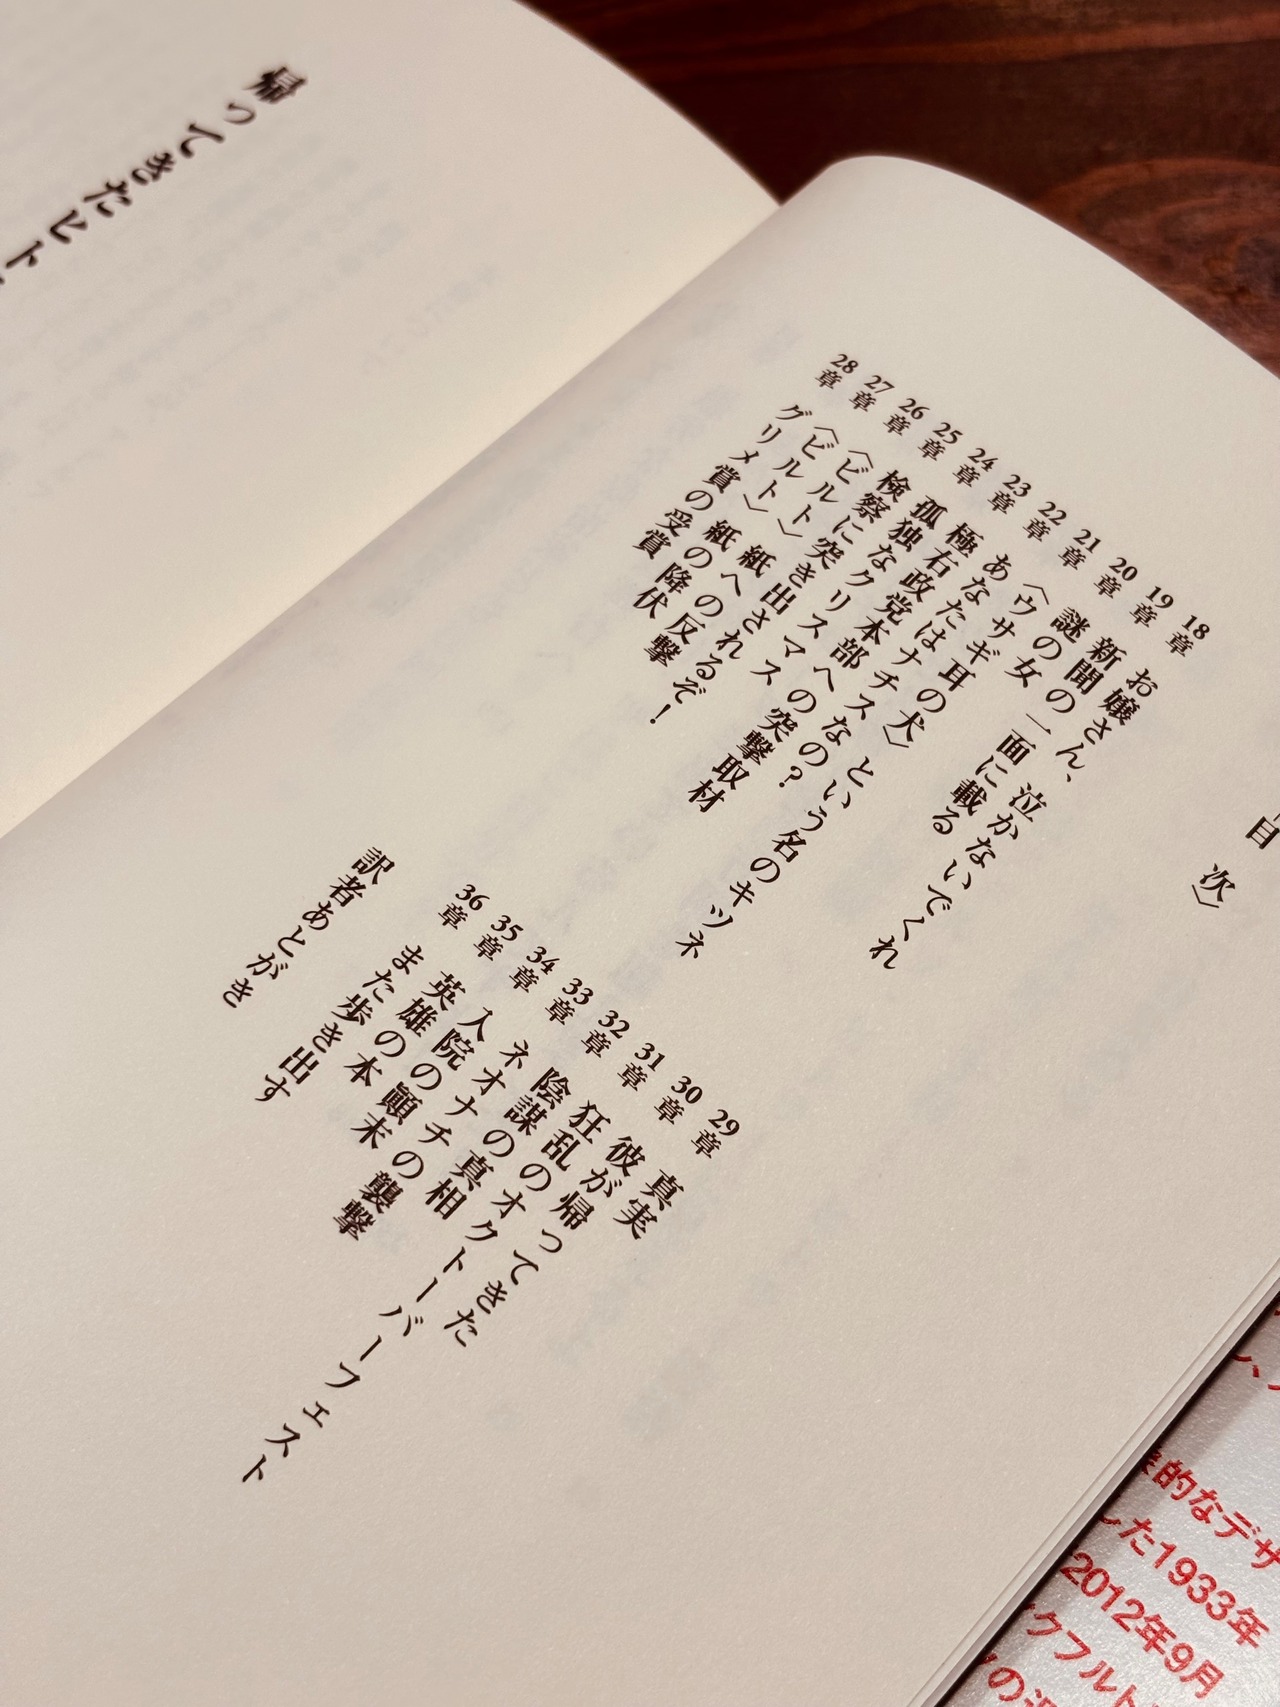 目 次〉
18章 お嬢さん、泣かないでくれ
19章 新聞の一面に載る
20章 謎の女
21章 〈ウサギ耳の犬〉という名のキツネ
22章 あなたはナチスなの?
23章 極右政党本部への突撃取材
24章 孤独なクリスマス
25章 検察に突き出されるぞ!
26章 〈ビルト〉紙への反撃
27章 〈ビルト〉紙の降伏
28章 グリメ賞の受賞
29章 真実
30章 彼が帰ってきた
31章 狂乱のオクトーバーフェスト
32章 陰謀の真相
33章 ネオナチの襲撃
34章 入院の顛末
35章 英雄の本
36章 また歩き出す
訳者あとがき
帰ってきたヒト
的なデザ
した1933年
2012年9月
クフルト
の